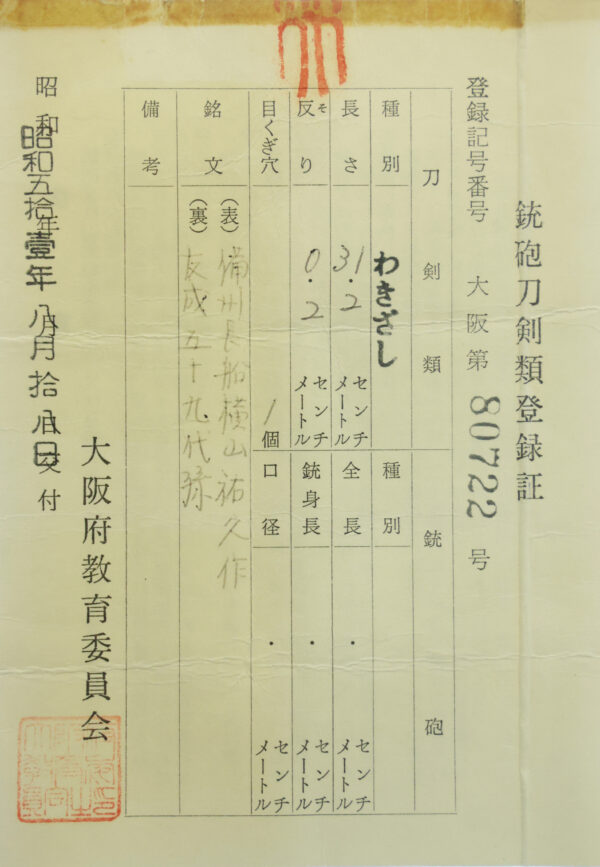 銃砲刀剣類登録証
登録記号番号 大阪第 80722 号
刀剣類 銃砲
種別 わきざし 種別
長さ 31.2 センチメートル 全長 ・ センチメートル
反り そ 0.2 センチメートル 銃身長 ・ センチメートル
目くぎ穴 1個 口径 ・ センチメートル
銘文 (表) 備州長船横山祐久作
(裏) 友成五十九代孫
備考
大阪府教育委員会
昭和 年 月 日交付
昭和五拾壹年 八月 拾八日